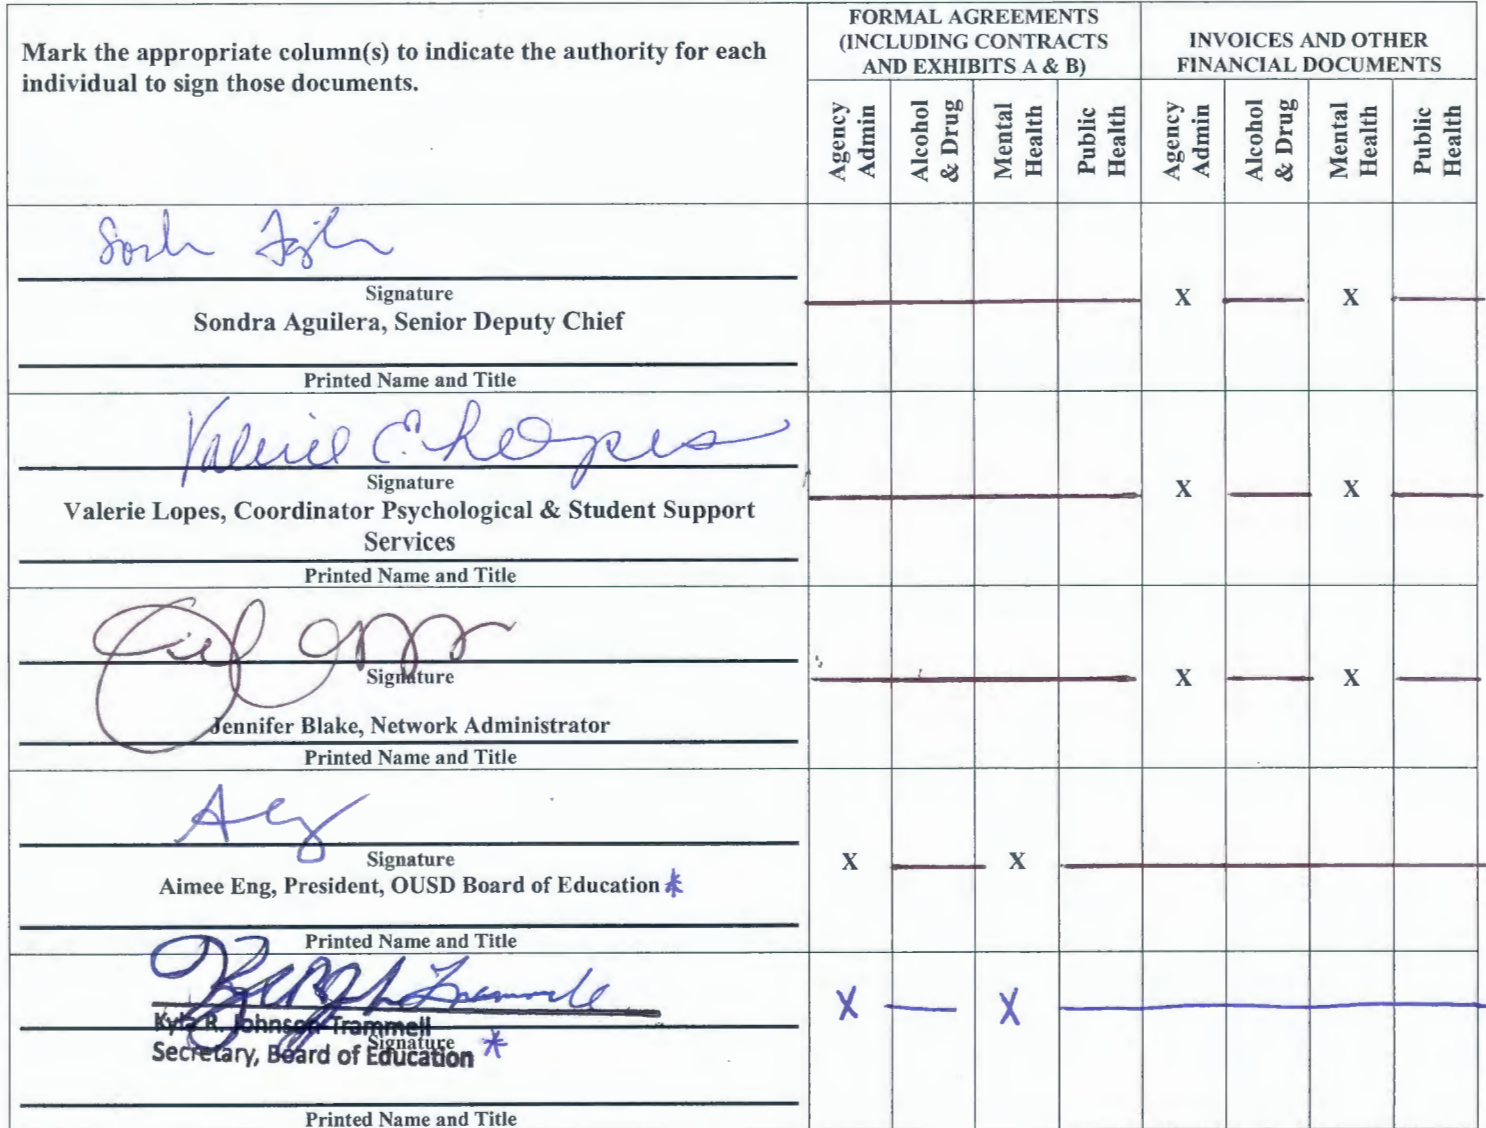 Mark the appropriate column(s) to indicate the authority for each
individual to sign those documents.
FORMAL AGREEMENTS
(INCLUDING CONTRACTS
AND EXHIBITS A & B)
INVOICES AND OTHER
FINANCIAL DOCUMENTS
Agency
Admin
Alcohol
& Drug
Mental
Health
Public
Health
Agency
Admin
Alcohol
& Drug
Mental
Health
Public
Health
Signature
Sondra Aguilera, Senior Deputy Chief
X X
Printed Name and Title
Valerie E. Lopes
Signature
Valerie Lopes, Coordinator Psychological & Student Support
Services
X X
Printed Name and Title
Signature
Jennifer Blake, Network Administrator
X X
Printed Name and Title
Signature
Aimee Eng, President, OUSD Board of Education *
X X
Printed Name and Title
Kyla R. Johnson-Trammell
Signature
Secretary, Board of Education *
X X
Printed Name and Title